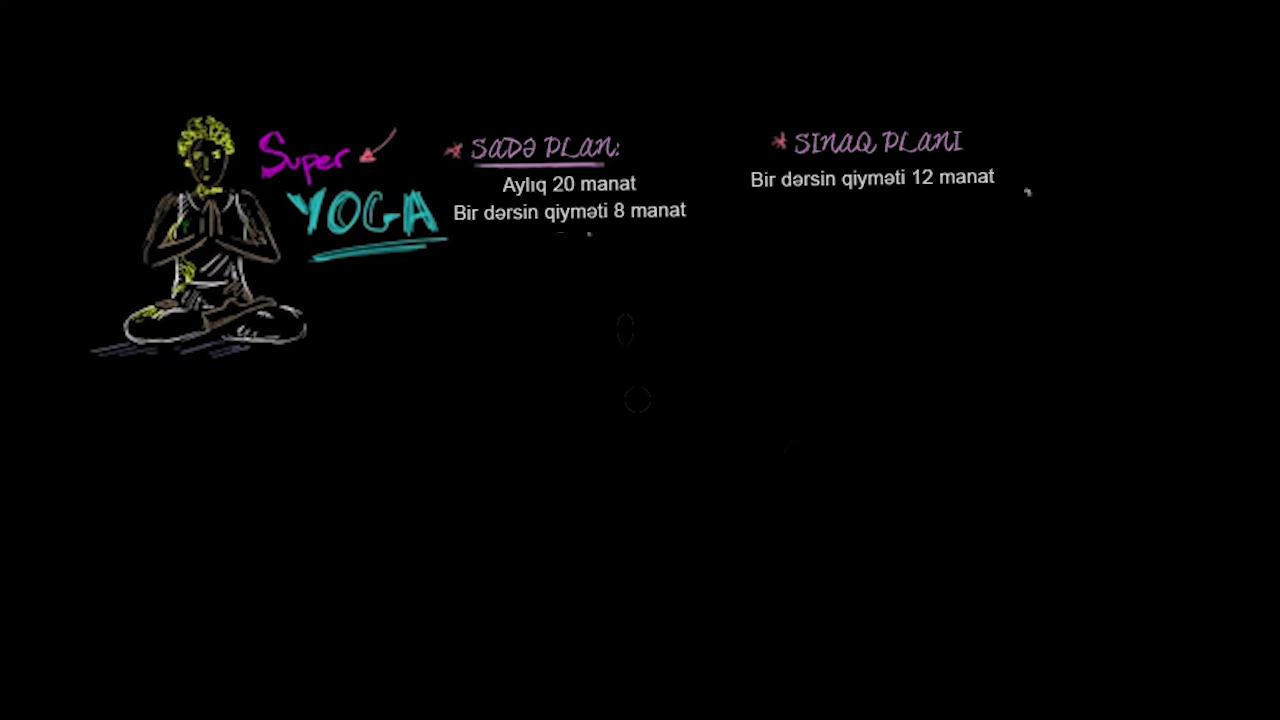 Super
YOGA
* SADƏ PLAN:
Aylıq 20 manat
Bir dərsin qiyməti 8 manat
* SINAQ PLANI
Bir dərsin qiyməti 12 manat